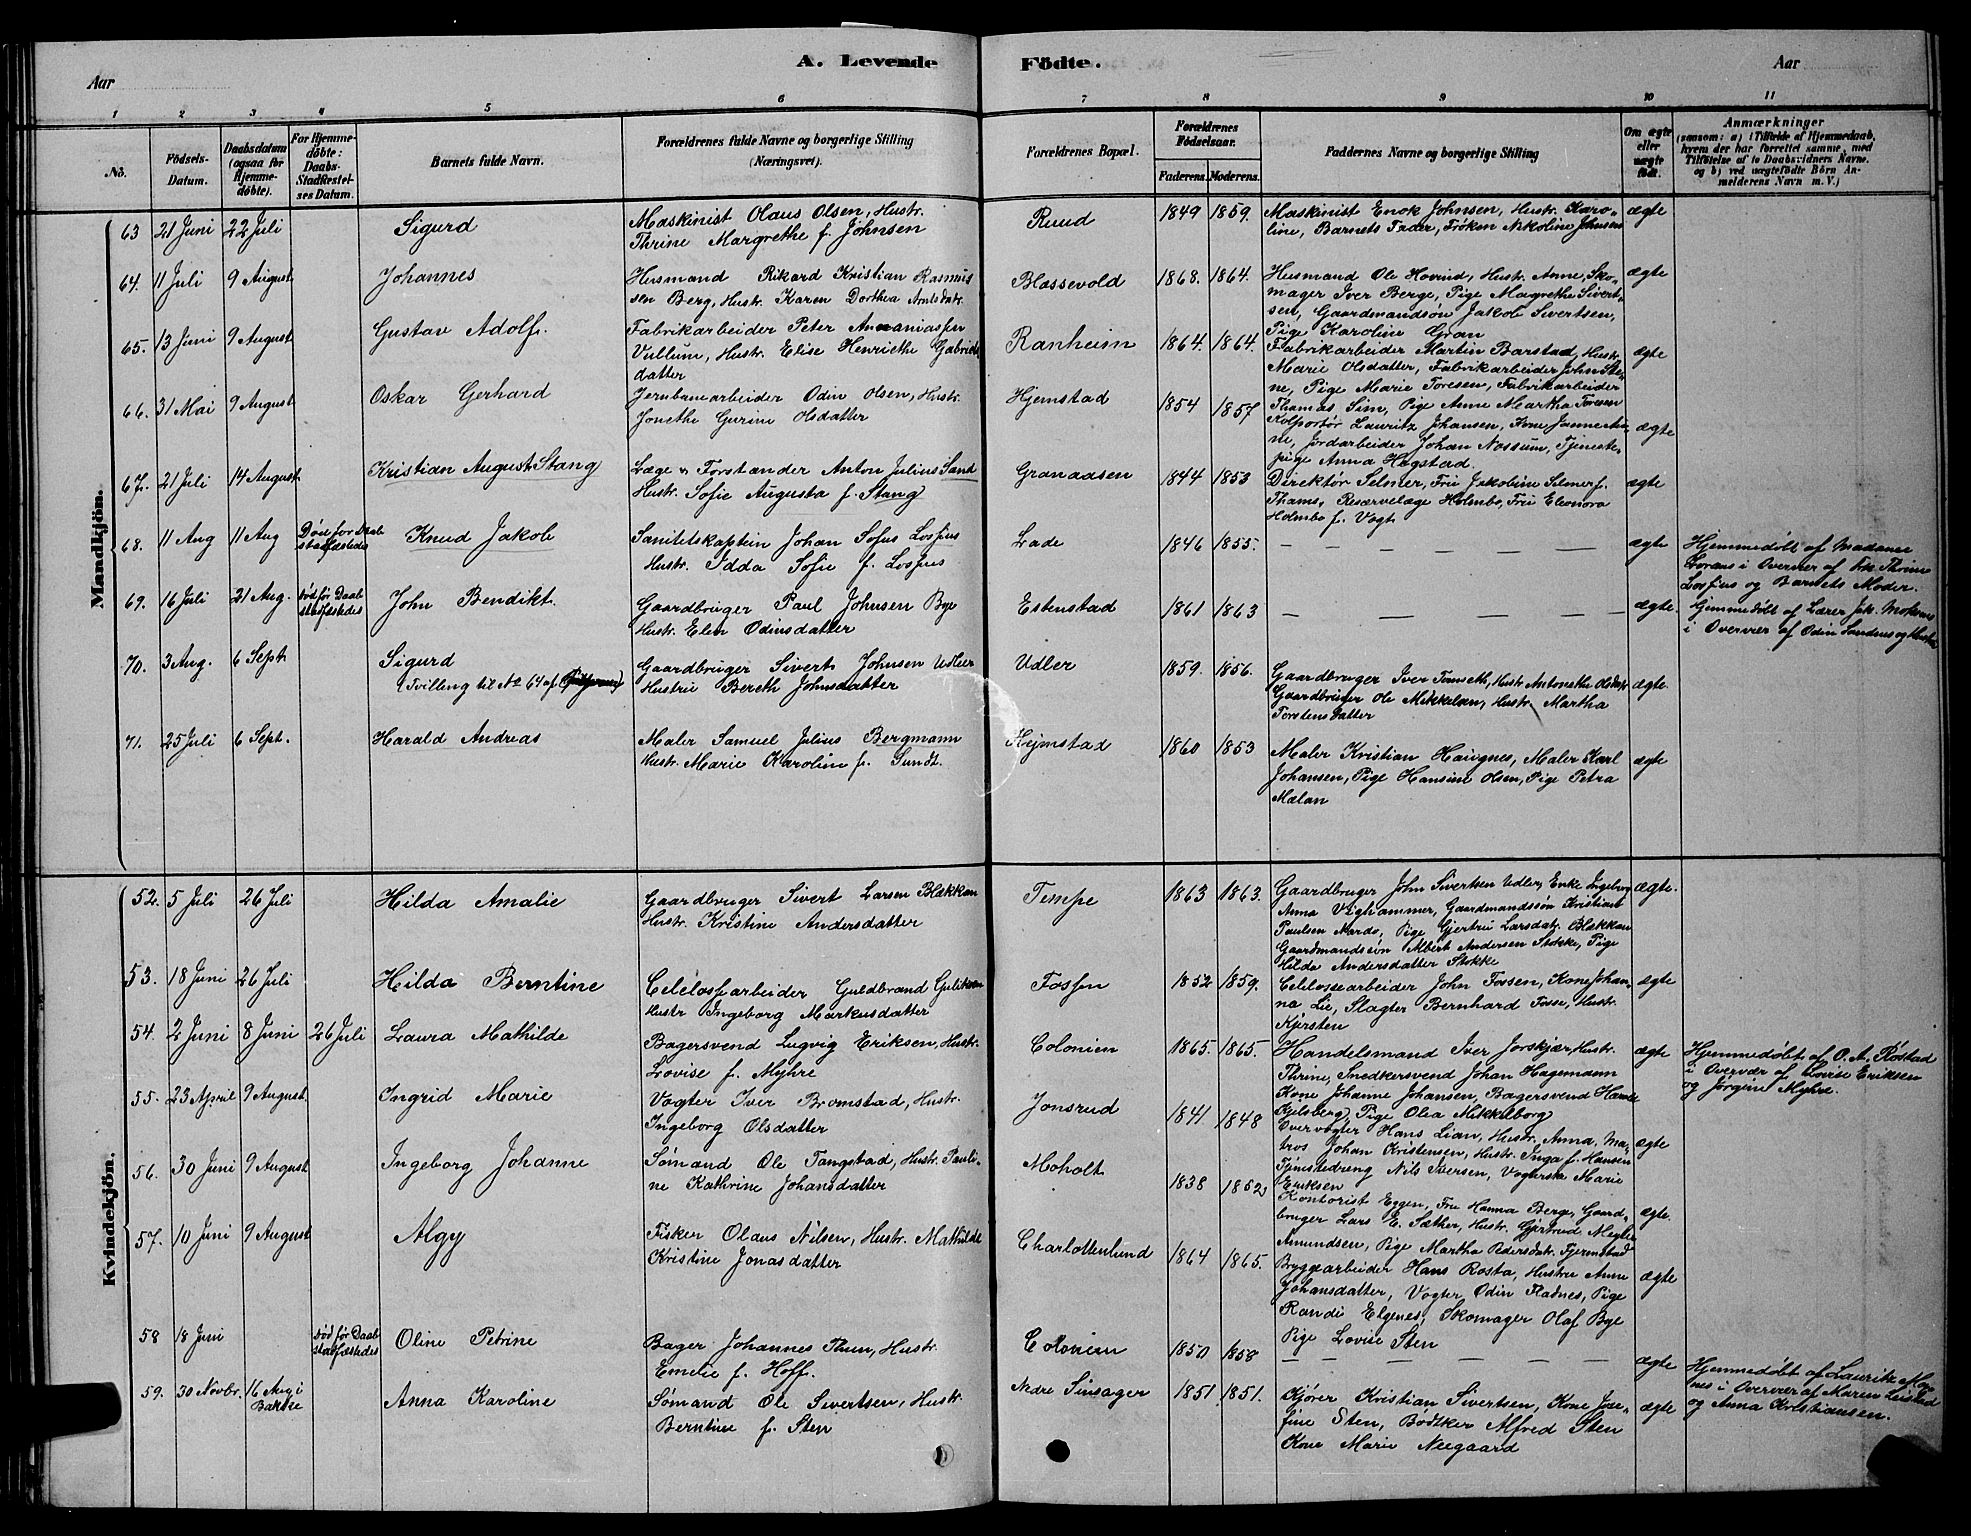 A. Levende Födte.
Aar
Aar
1 2 3 4 5 6 7 8 9 10 11
No.
Födsels-
Datum.
Daabsdatum
(ogsaa for
Hjemme-
döbte).
For Hjemme-
döbte:
Daabs-
Stadfæstel-
ses Datum.
Barnets fulde Navn.
Forældrenes fulde Navne og borgerlige Stilling
(Næringsvei).
Forældrenes Bopæl.
Forældrenes
Födselsaar.
Faderens. Moderens.
Faddernes Navne og borgerlige Stilling
Om ægte
eller
uægte
födt.
Anmærkninger
(saasom: a) i Tilfælde af Hjemmedaab,
hvem der har forrettet samme, med
Tilföielse af to Daabsvidners Navne.
og b) ved uægtefödte Börn An-
melderens Navn m. V.)
Mandkjön.
63 21 Juni 22 Juli Sigurd
Maskinist Olaus Olsen, Hustr.
Thrine Margrethe f. Johnsen
Ruud 1849 1859.
Maskinist Enok Johnsen, Hustr. Karo-
line, Barnets Fader, Frøken Nikoline Johnsen
ægte
64. 11 Juli 9 August Johannes
Husmand Rikard Kristian Rasmus
sen Berg, Hustr. Karen Dorthea Arntsdatr.
Blæssevold 1868. 1864.
Husmand Ole Hovind, Hustr. Anne, Sko-
mager Iver Berge, Pige Magrethe Sivert-
sen, Gaardmandsøn Jakob Sivertsen,
Pige Karoline Gran
ægte
65. 13 Juni 9 August Gustav Adolf.
Fabrikarbeider Peter Annaniassen
Vullum, Hustr. Elise Henriethe Gabriels
datter
Ranheim 1864. 1864.
Fabrikarbeider Martin Barstad, Hustr.
Marie Olsdatter, Fabrikarbeider John Ste-
ne, Pige Marie Toresen, Fabrikarbeider
Thomas Sim, Pige Anne Martha Toresen
ægte
66. 31 Mai 9 August Oskar Gerhard
Jernbanearbeider Odin Olsen, Hustr.
Jonethe Gurine Olsdatter
Hjemstad 1854 1857
Kolportør Lauritz Johansen, Kone Janne
ne, Jordarbeider Johan Nossum, Tjeneste-
pige Anna Hogstad.
ægte
67. 21 Juli 14 August Kristian August Stang
Læge & Forstander Anton Julius Sand
Hustr. Sofie Augusta f. Stang
Granaasen 1844 1853
Direktør Selmer, Fru Jakobine Selmer f.
Thams, Reservelæge Holmbo, Fru Eleonora
Holmbo f. Vogt
ægte
68. 11 Aug 11 Aug Død før Daab
stadfæstedes
Knud Jakob
Sanitetskaptein Johan Sofus Lossius
Hustr. Idda Sofie f. Lossius
Lade 1846 1855. — — — — — — ægte
Hjemmedøbt af Madame
i Overvær af Thrine
Lossius og Barnets Moder.
69. 16 Juli 21 Aug. død før Daab
stadfæstedes
John Bendikt.
Gaardbruger Paul Johnsen Bye
Hustr. Elen Odinsdatter
Estenstad 1861 1863 — — — — — — ægte.
Hjemmedøbt af Lærer Joh. Moksnes
i Overvær af Odin Sandnes og Hustru
70. 3 Aug. 6 Sept. Sigurd
(Tvilling til No 64 af
Gaardbruger Sivert Johnsen Udler
Hustru Bereth Johnsdatter
Udler 1859. 1856.
Gaardbruger Iver Tomseth, Hustr. Antonethe Olsdatr.
Gaardbruger Ole Mikkelsen, Hustr. Martha
Torstensdatter
ægte.
71. 25 Juli 6 Sept. Harald Andreas
Maler Samuel Julius Bergmann
Hustr. Marie Karoline f. Gundt.
Hejmstad 1860 1853
Maler Kristian Haugnes, Maler Karl
Johansen, Pige Hansine Olsen, Pige Petra
Mælan
ægte
Kvindekjön.
52. 5 Juli 26 Juli Hilda Amalie
Gaardbruger Sivert Larsen Blækkan
Hustr. Kristine Andersdatter
Tempe 1863 1863.
Gaardbruger John Sivertsen Udler, Enke Ingeborg
Anna Vighammer, Gaardmandssøn Kristian
Paulsen Nardo, Pige Gjertru Larsdatr. Blækkan
Gaardmandssøn Albert Andersen Stokke, Pige
Hilda Andersdatter Stokke
ægte.
53. 18 Juni 26 Juli Hilda Berntine
Celelossearbeider Guldbrand Guliksen
Hustr Ingeborg Markusdatter
Fossen 1852 1859.
Celelossearbeider John Fossen, Kone Johan-
na Lie, Slagter Bernhard Fosse, Hustr.
Kjersten
ægte
54. 2 Juni 8 Juni 26 Juli Laura Mathilde
Bagersvend Lugvig Eriksen, Hustr.
Lovise f. Myhre
Colonien 1865. 1865.
Handelsmand Iver Jorskjær, Hustr.
Thrine, Snedkersvend Johan Hagemann
Kone Johanne Johansen, Bagersvend Harald
Kjelsberg, Pige Olea Mikkelborg
ægte
Hjemmedøbt af O. A. Röstad
i Overvær af Lovise Eriksen
og Jörgine Myhre.
55. 23 April 9 August Ingrid Marie
Vogter Iver Bromstad, Hustr.
Ingeborg Olsdatter
Jonsrud 1841 1848
Overvogter Hans Lian, Hustr. Anna, Ma-
tros Johan Kristensen, Hustr. Inga f. Hansen
Tjenstedreng Nils Iversen, Vogterske Marie
Eriksen
ægte
56. 30 Juni 9 August Ingeborg Johanne
Sømand Ole Tangstad, Hustr. Pauli-
ne Kathrine Johansdatter
Moholt 1838 1852
Kontorist Eggen, Fru Hanna Berg, Gaard-
bruger Lars E. Sæther, Hustr. Gjertrud, Megler
Amundsen, Pige Martha Pedersdatr. Fjermstad
ægte.
57. 10 Juni 9 August Algy
Fisker Olaus Nilsen, Hustr. Mathilde
Kristine Jonasdatter
Charlottenlund 1864 1865.
Bryggearbeider Hans Rosta, Hustru Anne
Johansdatter, Vogter Odin Fladnes, Pige
Randi Elgenes, Skomager Olaf Bye
Pige Lovise Sten
ægte
58 18 Juni Død før Daab
stadfæstedes
Oline Petrine
Bager Johannes Thun, Hustr.
Emelie f. Hoff.
Colonien 1850 1858 — — — — — — ægte
Hjemmedøbt af Lauritz Mo-
nes i Overvær af Maren Leistad
og Anna Kristiansen.
59. 30 Novbr. 16 Aug i
Bakke
Anna Karoline
Sømand Ole Sivertsen, Hustr.
Berntine f. Sten
Nedre Sinsager 1851 1851.
Kjører Kristian Sivertsen, Kone Jose-
fine Sten, Bødker Alfred Sten
Kone Marie Neegaard
ægte